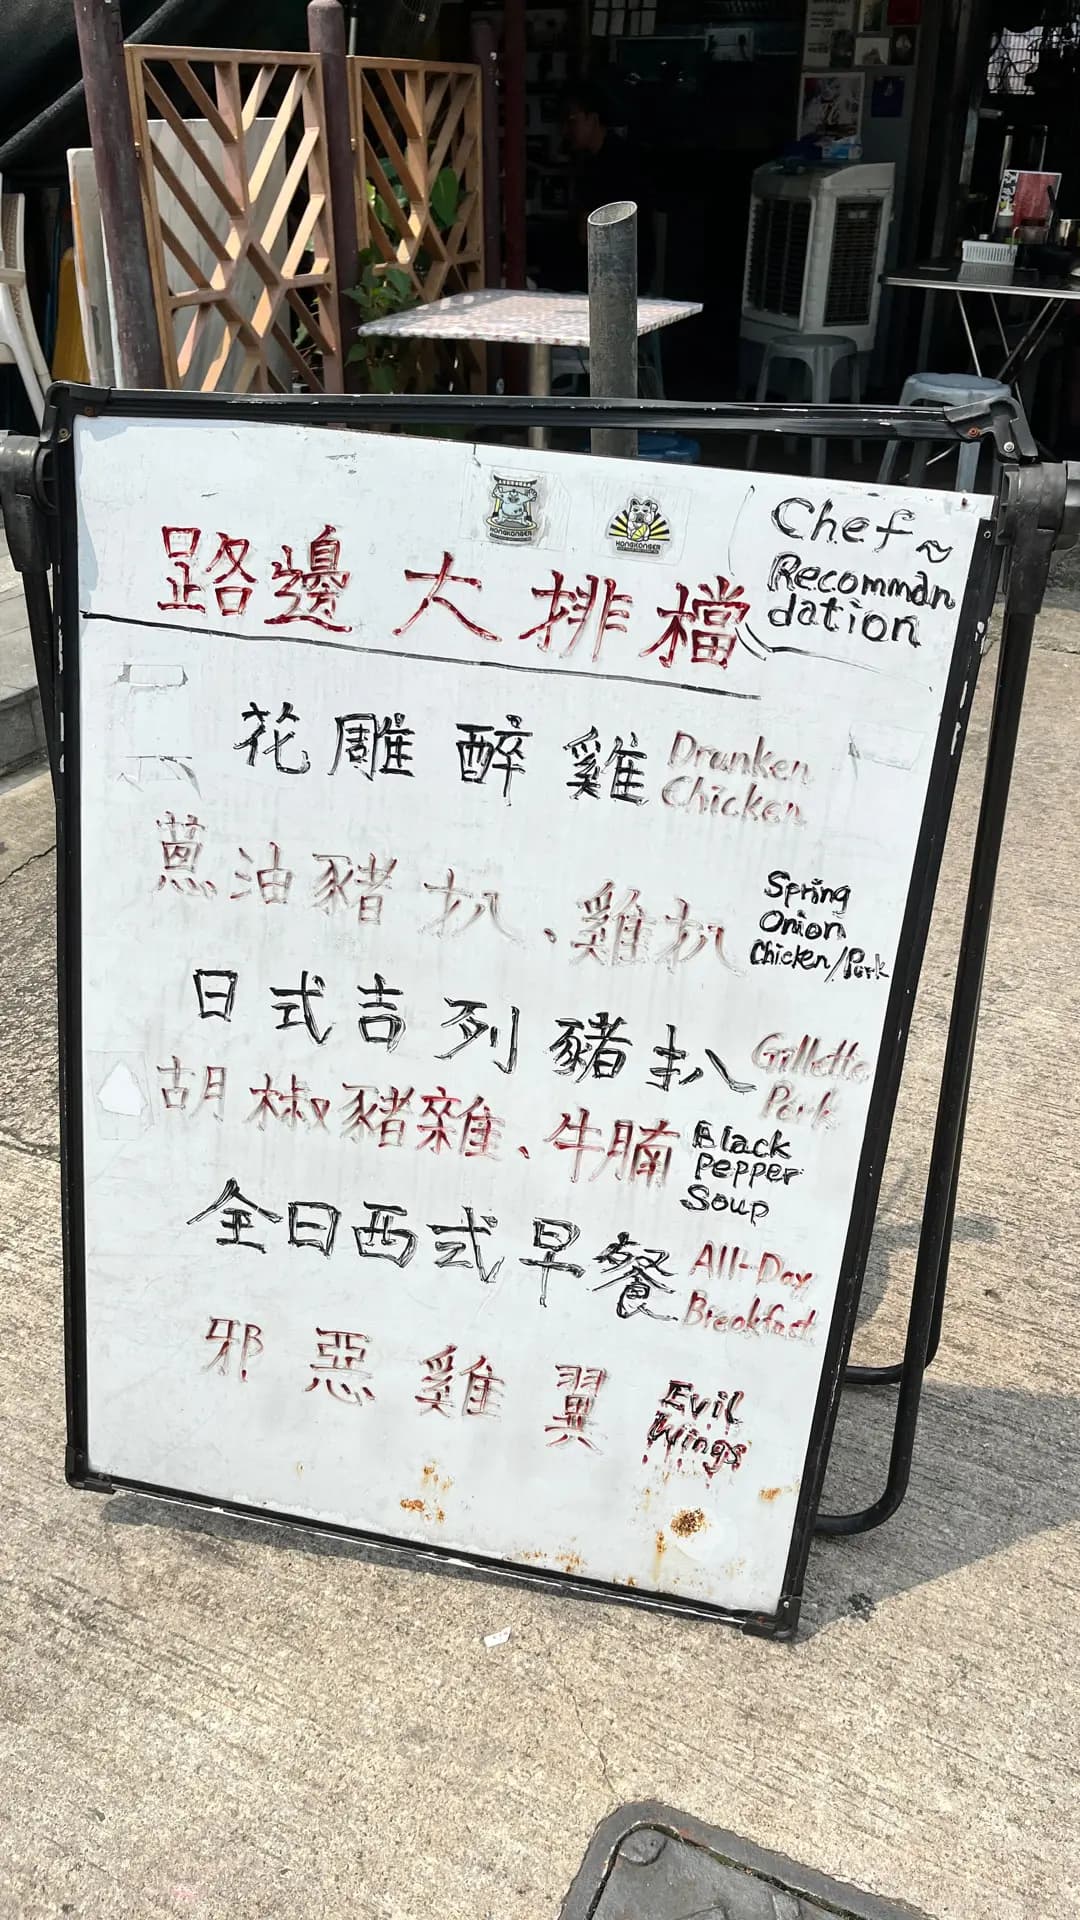 路邊大排檔
Chef~
Recomman
dation
花雕醉雞
Drunken
Chicken
蔥油豬扒、雞扒
Spring
Onion
Chicken/Pork
日式吉列豬扒
Gillette
Pork
胡椒豬雜、牛腩
Black
Pepper
Soup
全日西式早餐
All-Day
Breakfast
邪惡雞翼
Evil
Wings
HONGKONGER
HONGKONGER